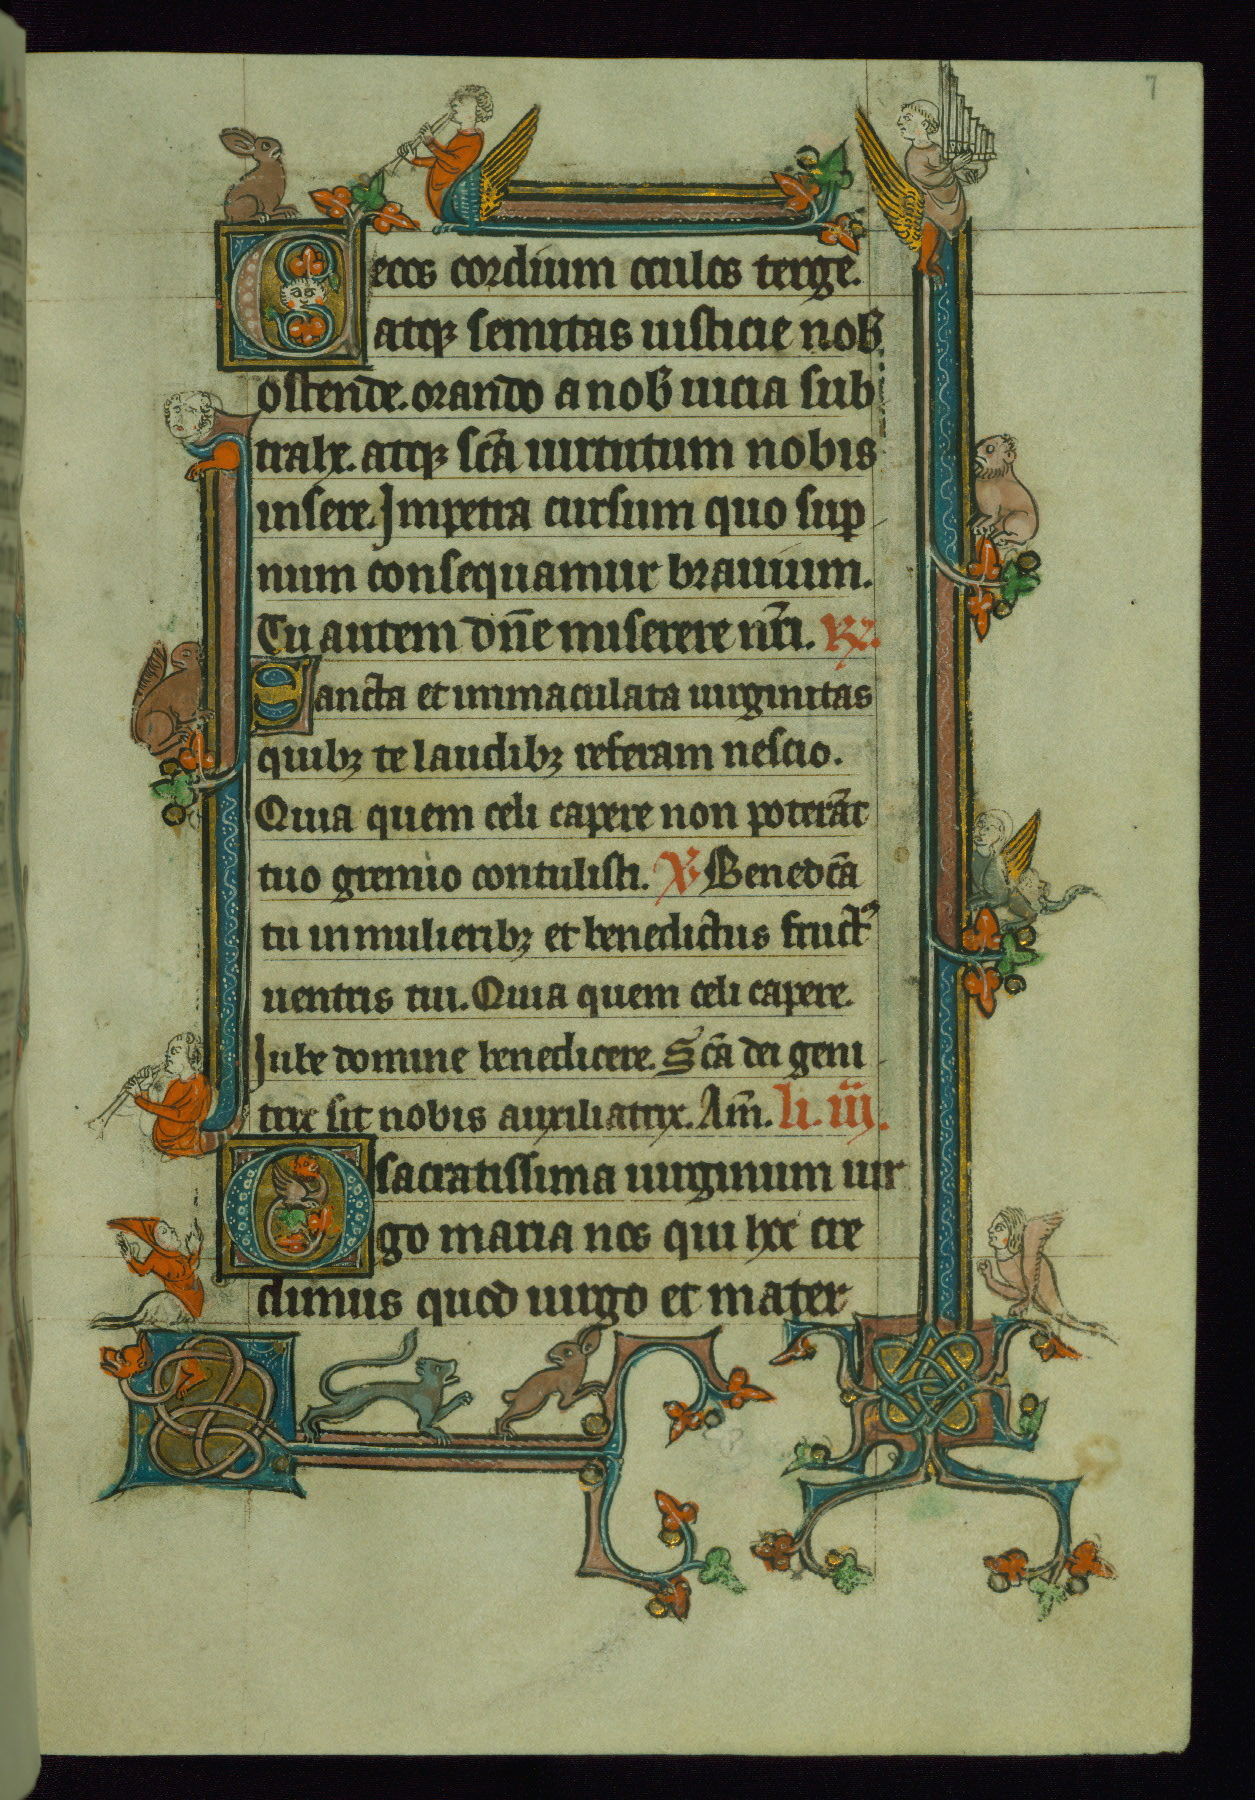 7
Cecos cordium oculos terge.
atq; semitas iusticie nob̄
ostende. orando a nob̄ uicia sub
trahe. atq; sc̄a uirtutum nobis
insere. Impetra cursum quo sup̄
num consequamur brauium.
Tu autem dn̄e miserere nr̄i. R.
Sancta et immaculata uirginitas
quib; te laudib; referam nescio.
Quia quem celi capere non poterāt
tuo gremio contulisti. V. Bened̄c̄a
tu in mulierib; et benedictus fruct⁹
uentris tui. Quia quem celi capere.
Iube domine benedicere. Sc̄a dei geni
trix sit nobis auxiliatrix. Am̄. li. iii.
O sacratissima uirginum uir
go maria nos qui hec cre
dimus quod uirgo et mater